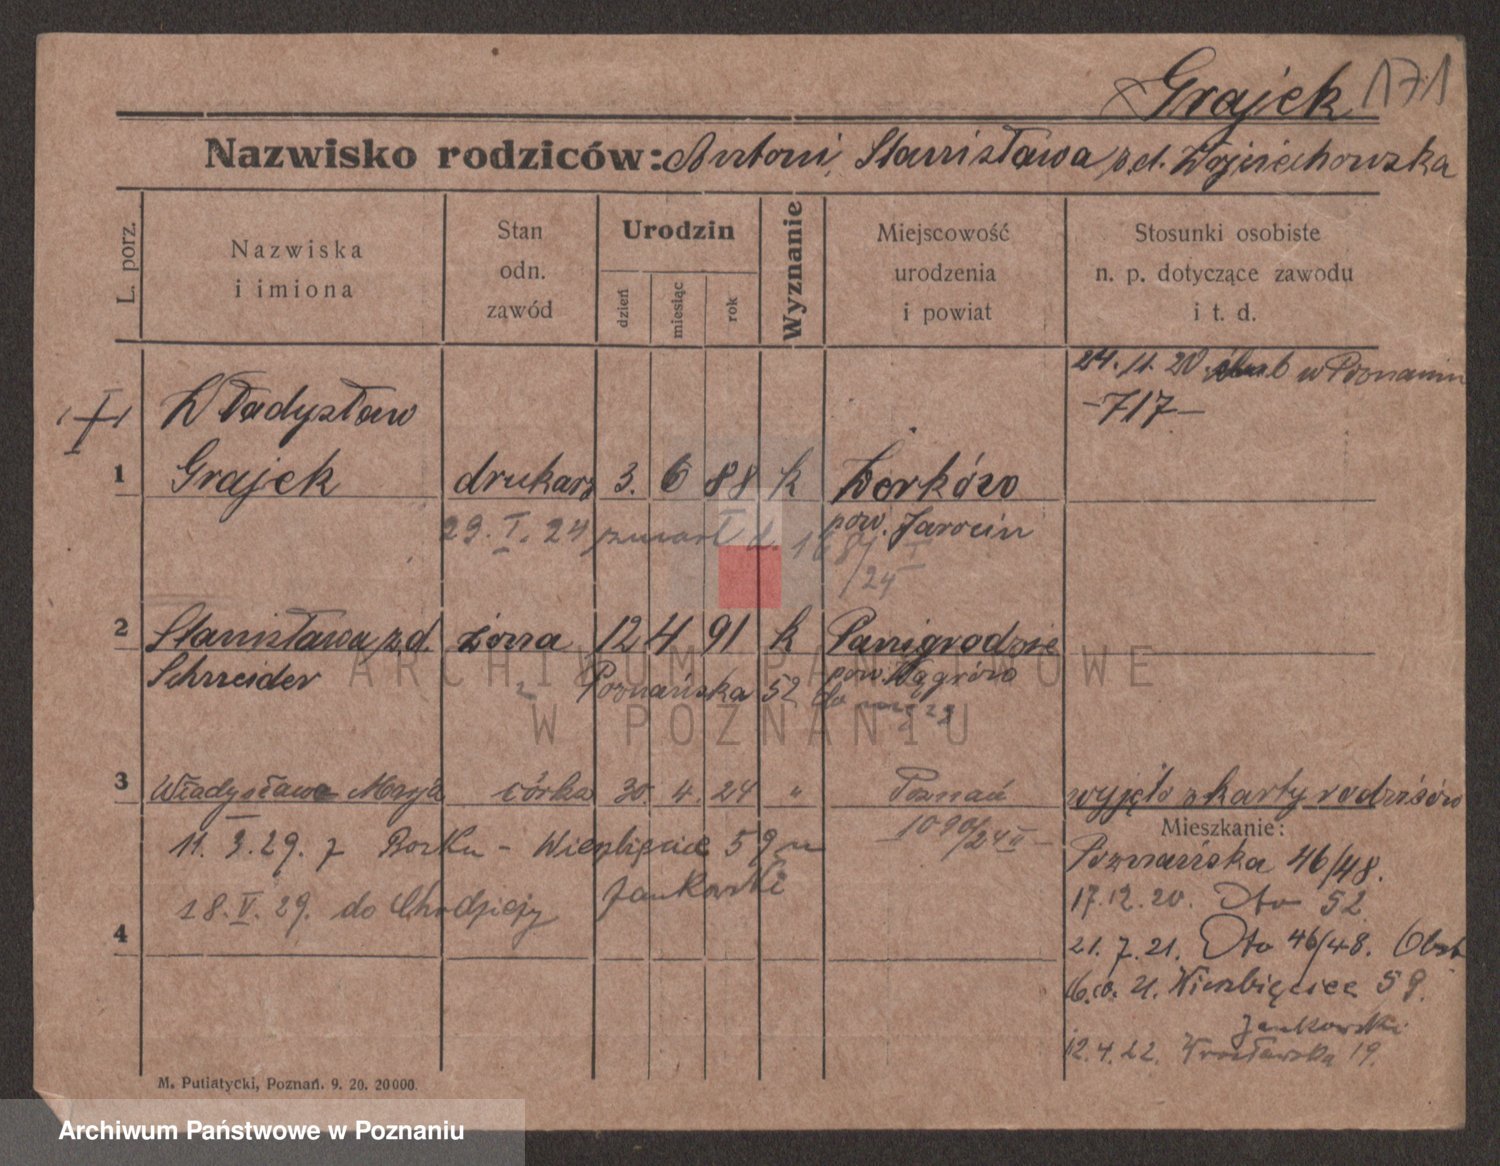 Grajek 171
Nazwisko rodziców: Antoni, Stanisława z.d. Wojciechowska
L. porz.
Nazwiska
i imiona
Stan
odn.
zawód
Urodzin
dzień
miesiąc
rok
Wyznanie
Miejscowość
urodzenia
i powiat
Stosunki osobiste
n. p. dotyczące zawodu
i t. d.
24. 11. 20 ślub w Poznaniu
-717-
I
Władysław
1 Grajek drukarz 3. 6 88 k Żerków
pow. Jarocin
29. I. 24 zmarł d. 168/I
/24
2 Stanisława z.d. żona 12 4 91 k Panigrodzie
Schneider Poznańska 52 pow. Wągrów
ARCHIWUM PAŃSTWOWE
W POZNANIU
3 Władysława Marja córka 30. 4. 24 " Poznań wyjęto z karty rodziców
1090/24 II
Mieszkanie:
11. 3. 29. z Borku - Wierzbięcice 59 u
Jankowski
18. V. 29. do Chodzieży
4
Poznańska 46/48.
17.12.20. Dto 52
21. 7. 21. Dto 46/48.
6.10. 21. Wierzbięcice 59.
Jankowski
12.4.22. Wrocławska 19.
M. Putiatycki, Poznań. 9. 20. 20000.
Archiwum Państwowe w Poznaniu